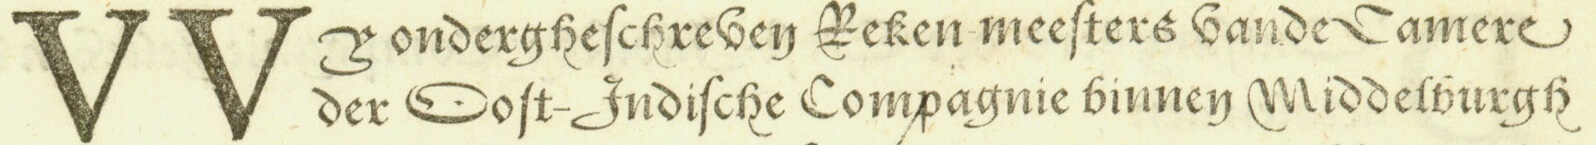 VVY ondergheſchreven Reken-meeſters vande Camere
der Ooſt-Indiſche Compagnie binnen Middelburgh